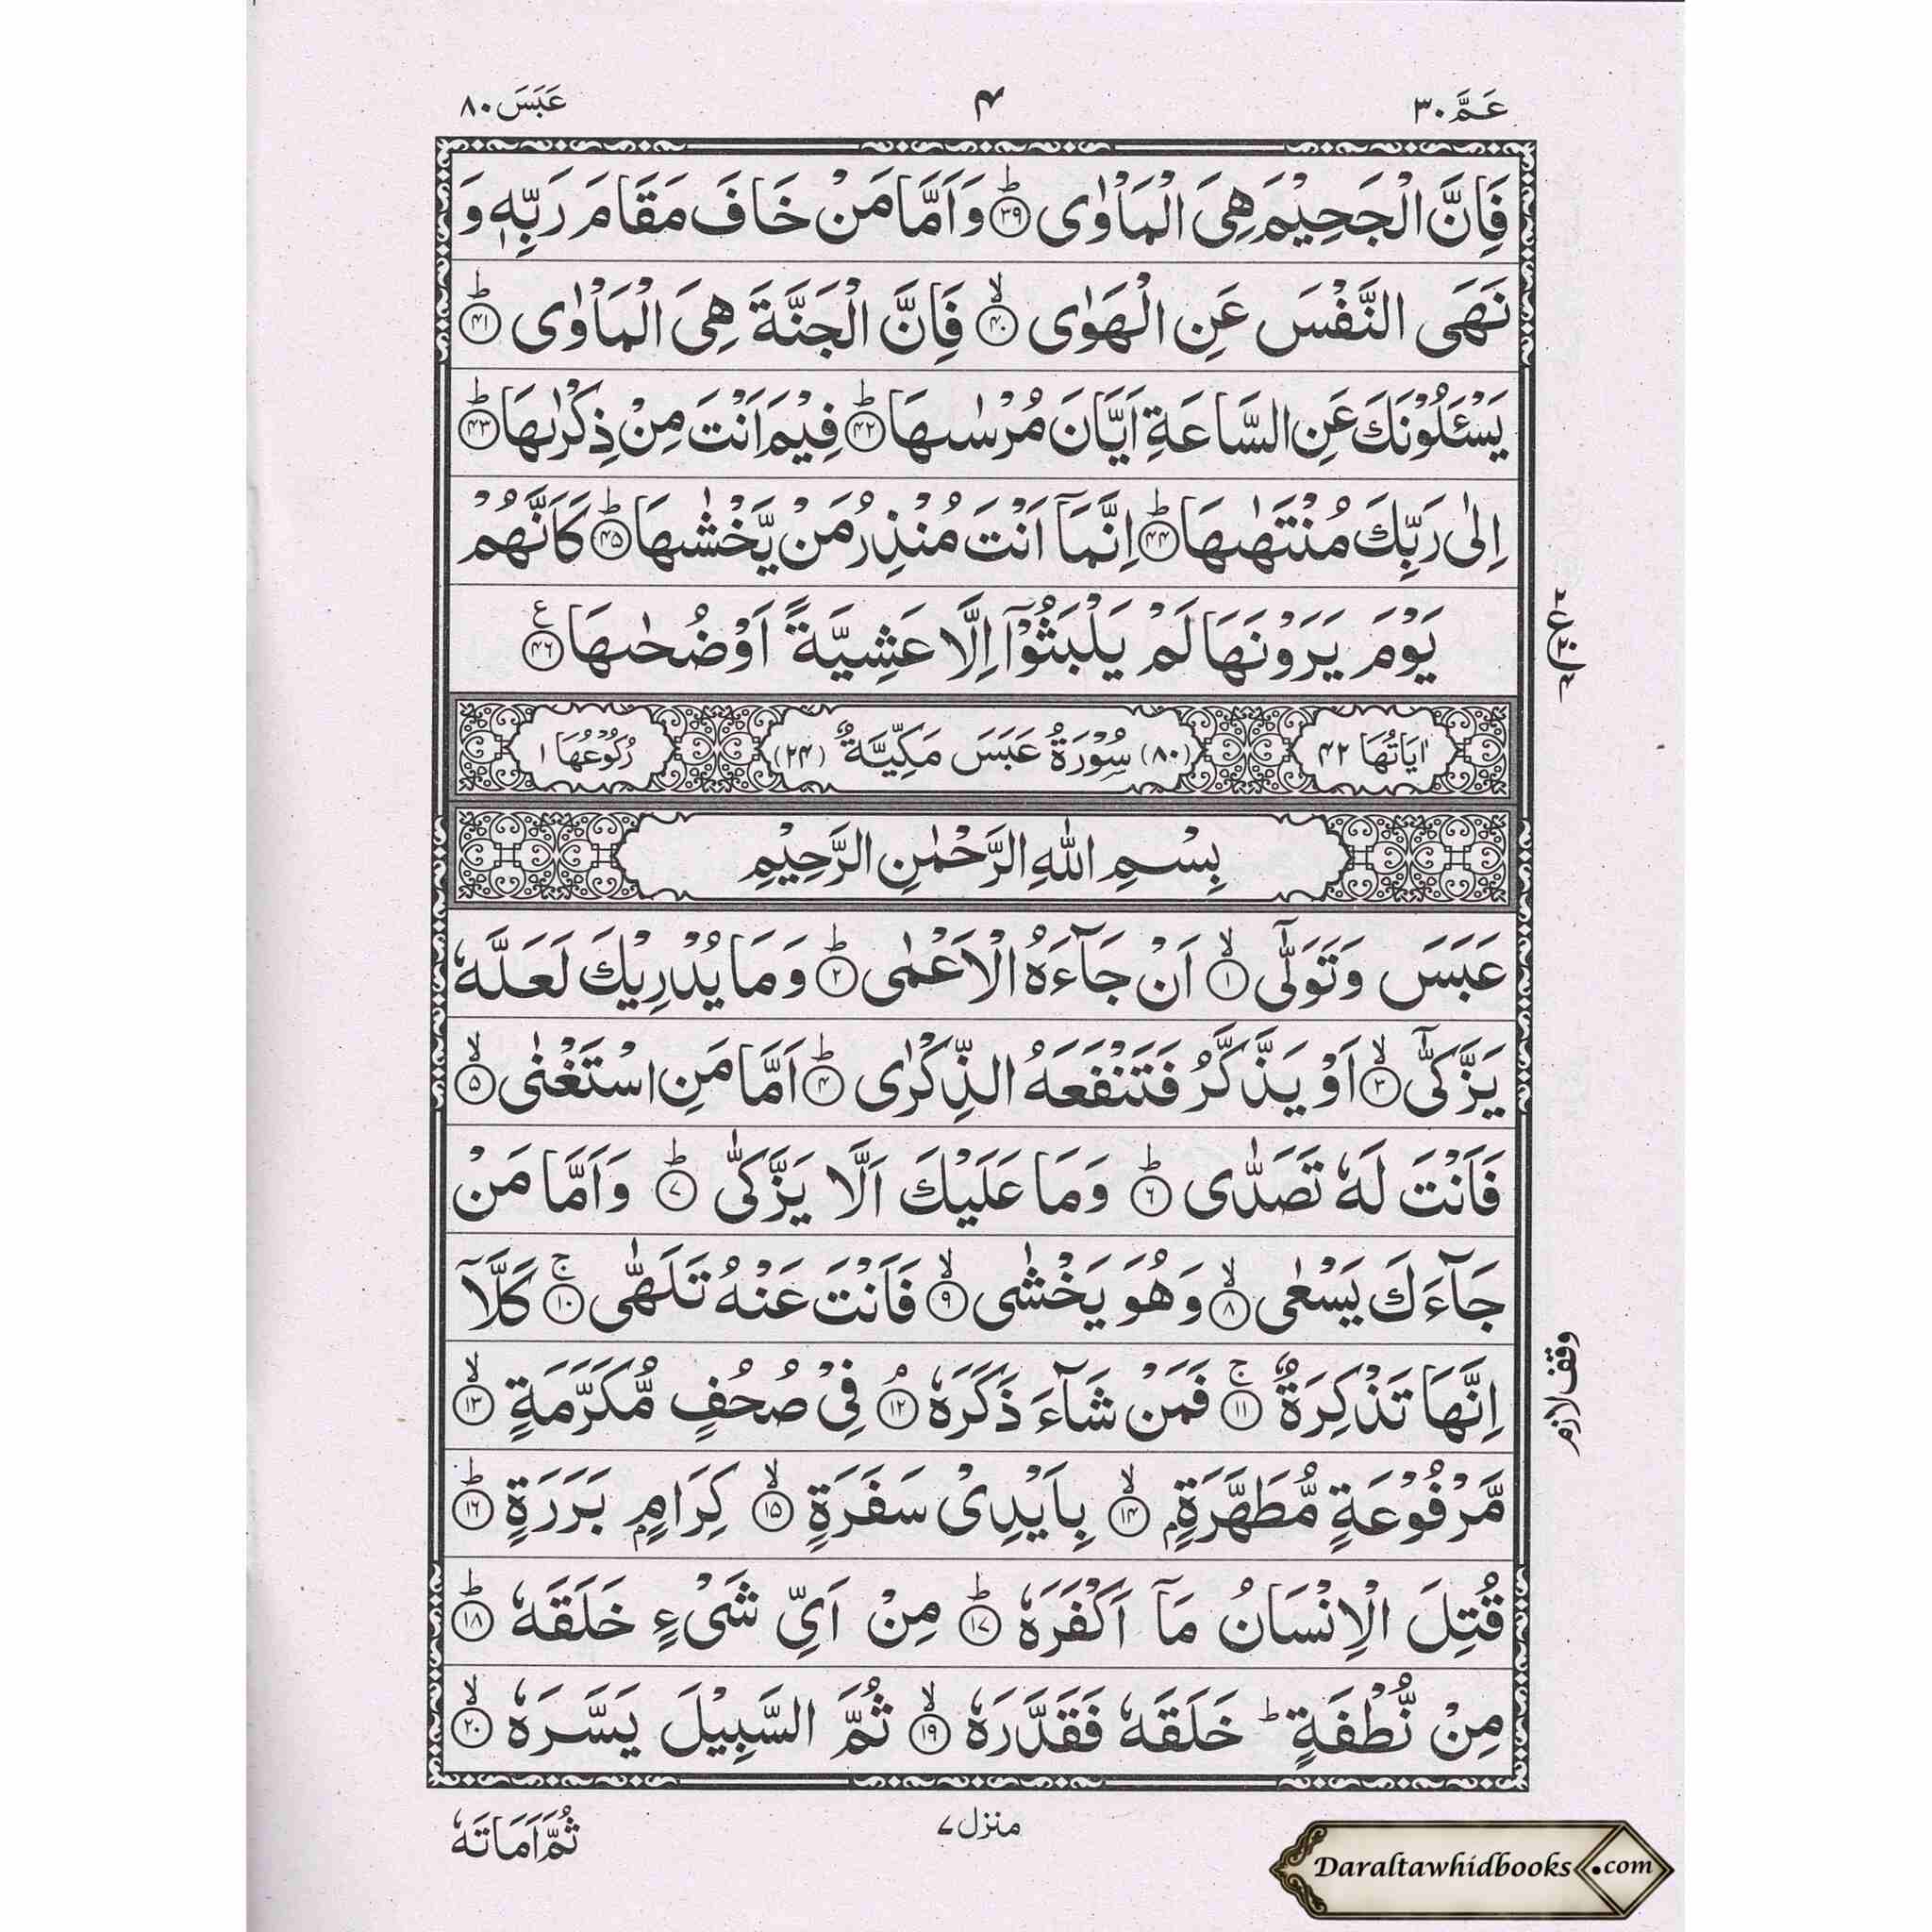 عَمَّ ٣٠
٤
عَبَسَ ٨٠
فَاِنَّ الْجَحِيْمَ هِيَ الْمَاْوٰى ؕ﴿٣٩﴾ وَاَمَّا مَنْ خَافَ مَقَامَ رَبِّهٖ وَ
نَهَى النَّفْسَ عَنِ الْهَوٰى ۙ﴿٤٠﴾ فَاِنَّ الْجَنَّةَ هِيَ الْمَاْوٰى ؕ﴿٤١﴾
يَسْـَٔلُوْنَكَ عَنِ السَّاعَةِ اَيَّانَ مُرْسٰىهَا ؕ﴿٤٢﴾ فِيْمَ اَنْتَ مِنْ ذِكْرٰىهَا ؕ﴿٤٣﴾
اِلٰى رَبِّكَ مُنْتَهٰىهَا ؕ﴿٤٤﴾ اِنَّمَاۤ اَنْتَ مُنْذِرُ مَنْ يَّخْشٰىهَا ؕ﴿٤٥﴾ كَاَنَّهُمْ
يَوْمَ يَرَوْنَهَا لَمْ يَلْبَثُوْۤا اِلَّا عَشِيَّةً اَوْ ضُحٰىهَا ﴿٤٦﴾ع
اٰيَاتُهَا ٤٢
(٨٠) سُوْرَةُ عَبَسَ مَكِّيَّةٌ (٢٤)
رُكُوْعُهَا ١
بِسْمِ اللّٰهِ الرَّحْمٰنِ الرَّحِيْمِ
عَبَسَ وَتَوَلّٰۤى ۙ﴿١﴾ اَنْ جَآءَهُ الْاَعْمٰى ؕ﴿٢﴾ وَمَا يُدْرِيْكَ لَعَلَّهٗ
يَزَّكّٰۤى ۙ﴿٣﴾ اَوْ يَذَّكَّرُ فَتَنْفَعَهُ الذِّكْرٰى ؕ﴿٤﴾ اَمَّا مَنِ اسْتَغْنٰى ۙ﴿٥﴾
فَاَنْتَ لَهٗ تَصَدّٰى ؕ﴿٦﴾ وَمَا عَلَيْكَ اَلَّا يَزَّكّٰى ؕ﴿٧﴾ وَاَمَّا مَنْ
جَآءَكَ يَسْعٰى ۙ﴿٨﴾ وَهُوَ يَخْشٰى ۙ﴿٩﴾ فَاَنْتَ عَنْهُ تَلَهّٰى ۚ﴿١٠﴾ كَلَّاۤ
اِنَّهَا تَذْكِرَةٌ ۚ﴿١١﴾ فَمَنْ شَآءَ ذَكَرَهٗ ۘ﴿١٢﴾ فِيْ صُحُفٍ مُّكَرَّمَةٍ ۙ﴿١٣﴾
وقف لازم
مَّرْفُوْعَةٍ مُّطَهَّرَةٍۭ ۙ﴿١٤﴾ بِاَيْدِيْ سَفَرَةٍ ۙ﴿١٥﴾ كِرَامٍۭ بَرَرَةٍ ؕ﴿١٦﴾
قُتِلَ الْاِنْسَانُ مَاۤ اَكْفَرَهٗ ؕ﴿١٧﴾ مِنْ اَيِّ شَيْءٍ خَلَقَهٗ ؕ﴿١٨﴾
مِنْ نُّطْفَةٍ ؕ خَلَقَهٗ فَقَدَّرَهٗ ۙ﴿١٩﴾ ثُمَّ السَّبِيْلَ يَسَّرَهٗ ۙ﴿٢٠﴾
منزل ٧
ثُمَّ اَمَاتَهٗ
Daraltawhidbooks.com